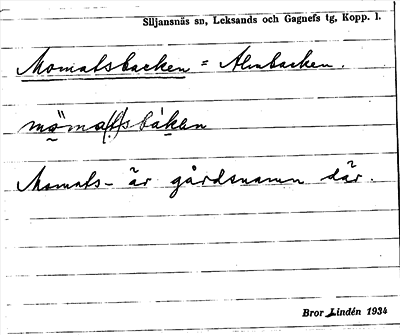 Siljansnäs sn, Leksands och Gagnefs tg, Kopp. l.
Momatsbacken = Almbacken.
möma(t)sbákan
Momats- är gårdsnamn där.
Bror Lindén 1934